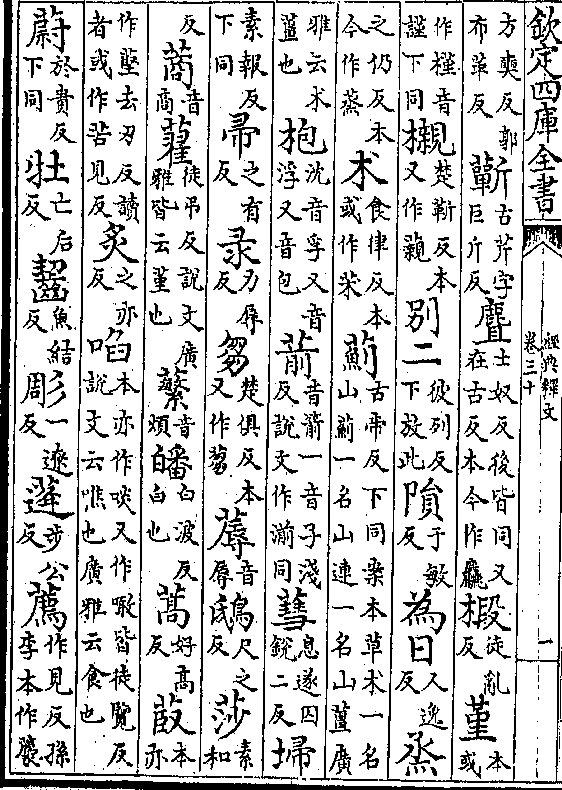 欽定四庫全書 經典釋文 卷三十 一
方奭反郭布革反 蘄 古芹字巨斤反 麆 士奴反後皆同又在古反本今作麤 椴 徒亂反 堇 本或
作槿音謹下同 櫬 楚靳反本又作藽 別二 彼列反下放此 隕 于敏反 為日 人逸反 烝
之仍反本今作蒸 朮 食律反本或作茱 薊 古帝反下同案本草朮一名山薊一名山連一名山薑廣
雅云朮薑也 枹 沈音孚又音浮又音包 葥 音箭一音子淺反說文作湔同 蔧 息遂囚銳二反 埽
素報反下同 帚 之有反 录 力辱反 芻 楚俱反本又作蒭 蓐 音辱 鴟 尺之反 莎 素和
反 蔏 音商 藋 徒弔反說文廣雅皆云堇也 蘩 音煩 皤 白波反白也 蒿 好高反 菣 本亦
作壂去刃反讀者或作苦見反 炙 之亦反 啗 本亦作啖又作噉皆徒覽反說文云噍也廣雅云食也
蔚 於貴反下同 牡 亡后反 齧 魚結反 彫 一遼反 蓬 步公反 薦 作見反孫李本作